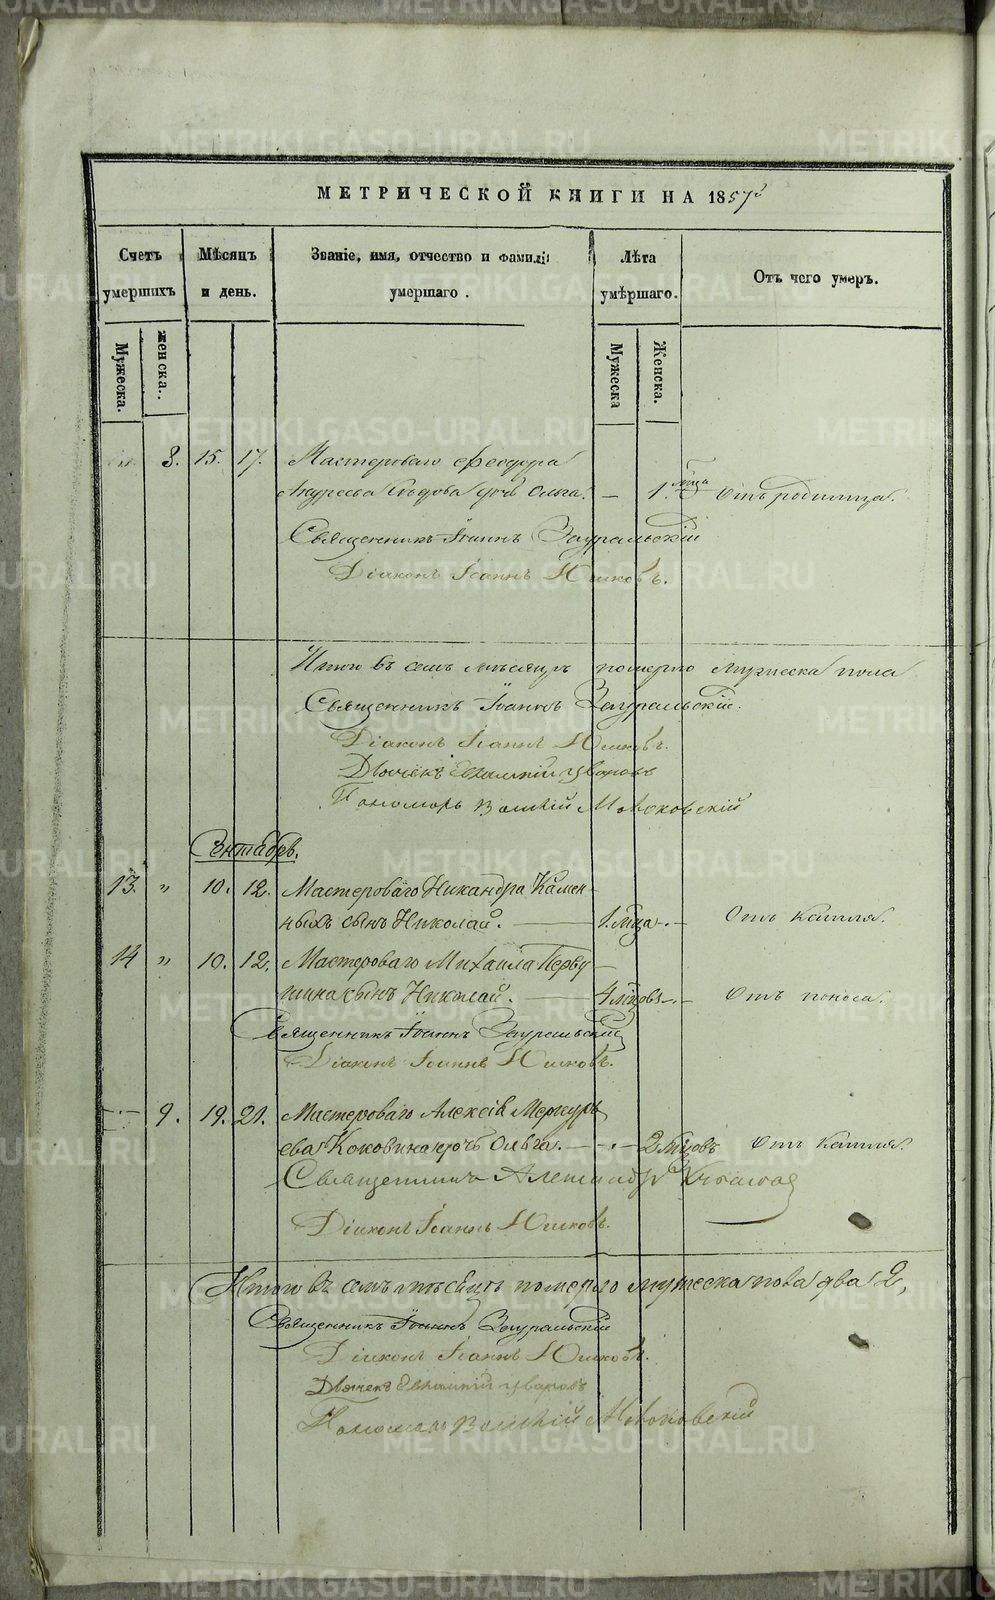 МЕТРИЧЕСКОЙ КНИГИ НА 1857й
Счетъ умершихъ
Мѣсяцъ и день.
Званіе, имя, отчество и фамилі умершаго.
Лѣта умѣршаго.
Отъ чего умеръ.
Мужеска.
женска.
Мужеска
Женска.
8. 15. 17. Мастероваго Феодора
Андреева дчь Ольга. — 1. мца Отъ родимца.
Священникъ Іоаннъ Зауральскій
Діаконъ Іоаннъ Юшковъ.
Итого въ семъ мѣсяцѣ померло мужеска пола
Священникъ Іоаннъ Зауральскій.
Діаконъ Іоаннъ Юшковъ.
Дьячекъ Евлампій Уваровъ
Пономарь Москосвкій
Сентябрь.
13. " 10. 12. Мастероваго Никандра Камен-
ныхъ сынъ Николай. — 1. мца — Отъ кашля.
14 " 10. 12. Мастероваго Михаила Перву
шина сынъ Николай. — 4 мцовъ — Отъ поноса.
Священникъ Іоаннъ Зауральскій
Діаконъ Іоаннъ Юшковъ.
9. 19. 21. Мастероваго Алексія Меркурь
ева Коковина дочь Ольга. — 2 мцовъ Отъ кашля.
Священникъ Александръ
Діаконъ Іоаннъ Юшковъ.
Итого въ семъ мѣсяцѣ померло мужеска пола два 2,
Священникъ Іоаннъ Зауральскій
Діаконъ Іоаннъ Юшковъ.
Дьячекъ Евлампій Уваровъ
Пономарь
METRIKI.GASO-URAL.RU